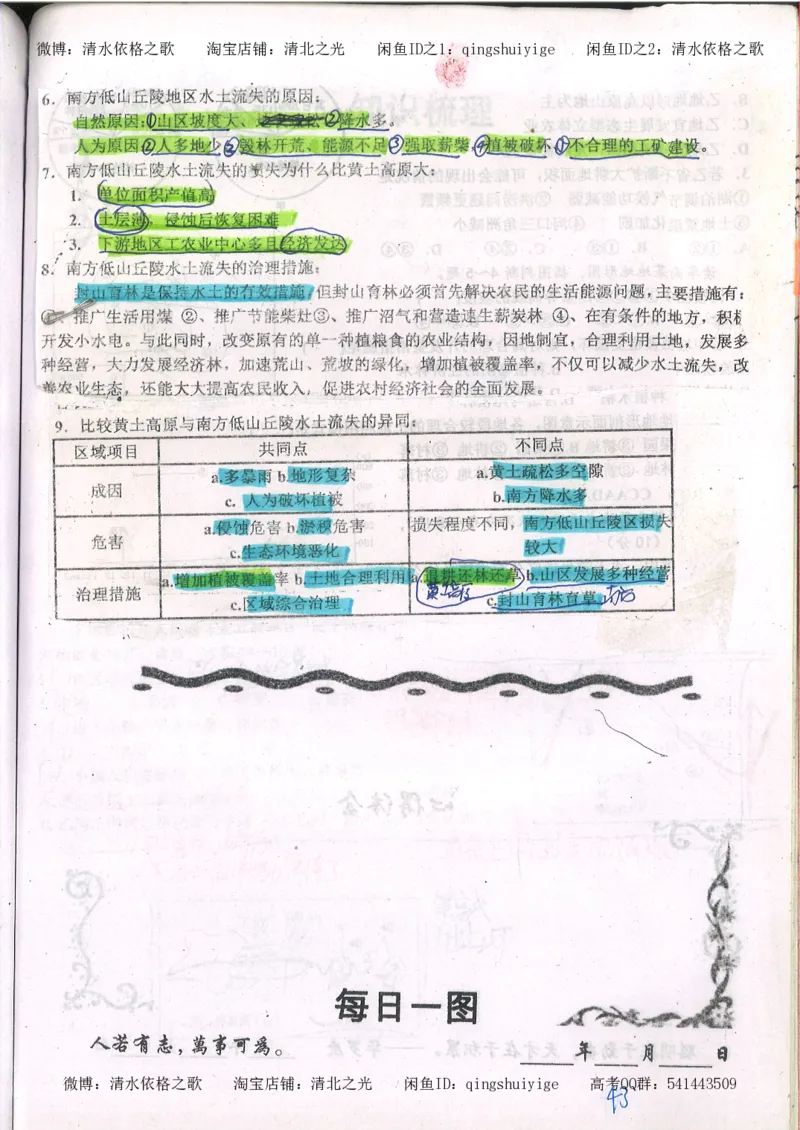 微博：清水依格之歌 淘宝店铺：清北之光 闲鱼ID之1：qingshuiyige 闲鱼ID之2：清水依格之歌
6．南方低山丘陵地区水土流失的原因：
自然原因：①山区坡度大、②降水多。
人为原因①人多地少②毁林开荒、能源不足③强取薪柴，④植被破坏、⑤不合理的工矿建设。
7．南方低山丘陵水土流失的损失为什么比黄土高原大：
1. 单位面积产值高
2. 土层薄，侵蚀后恢复困难
3. 下游地区工农业中心多且经济发达
8．南方低山丘陵水土流失的治理措施：
封山育林是保持水土的有效措施，但封山育林必须首先解决农民的生活能源问题，主要措施有：
①、推广生活用煤 ②、推广节能柴灶③、推广沼气和营造速生薪炭林 ④、在有条件的地方，积极
开发小水电。与此同时，改变原有的单一种植粮食的农业结构，因地制宜，合理利用土地，发展多
种经营，大力发展经济林，加速荒山、荒坡的绿化，增加植被覆盖率，不仅可以减少水土流失，改
善农业生态，还能大大提高农民收入，促进农村经济社会的全面发展。
9．比较黄土高原与南方低山丘陵水土流失的异同：
区域项目 共同点 不同点
成因 a.多暴雨 b.地形复杂 a.黄土疏松多空隙
c. 人为破坏植被 b.南方降水多
危害 a.侵蚀危害 b.淤积危害 损失程度不同，南方低山丘陵区损失
c.生态环境恶化 较大
治理措施 a.增加植被覆盖率 b.土地合理利用 a.退耕还林还草 b.山区发展多种经营
c.区域综合治理 黄土高原 c.封山育林育草 南方
心得体会
每日一图
人若有志，萬事可為。 年 月 日
微博：清水依格之歌 淘宝店铺：清北之光 闲鱼ID：qingshuiyige 高考QQ群：541443509
43